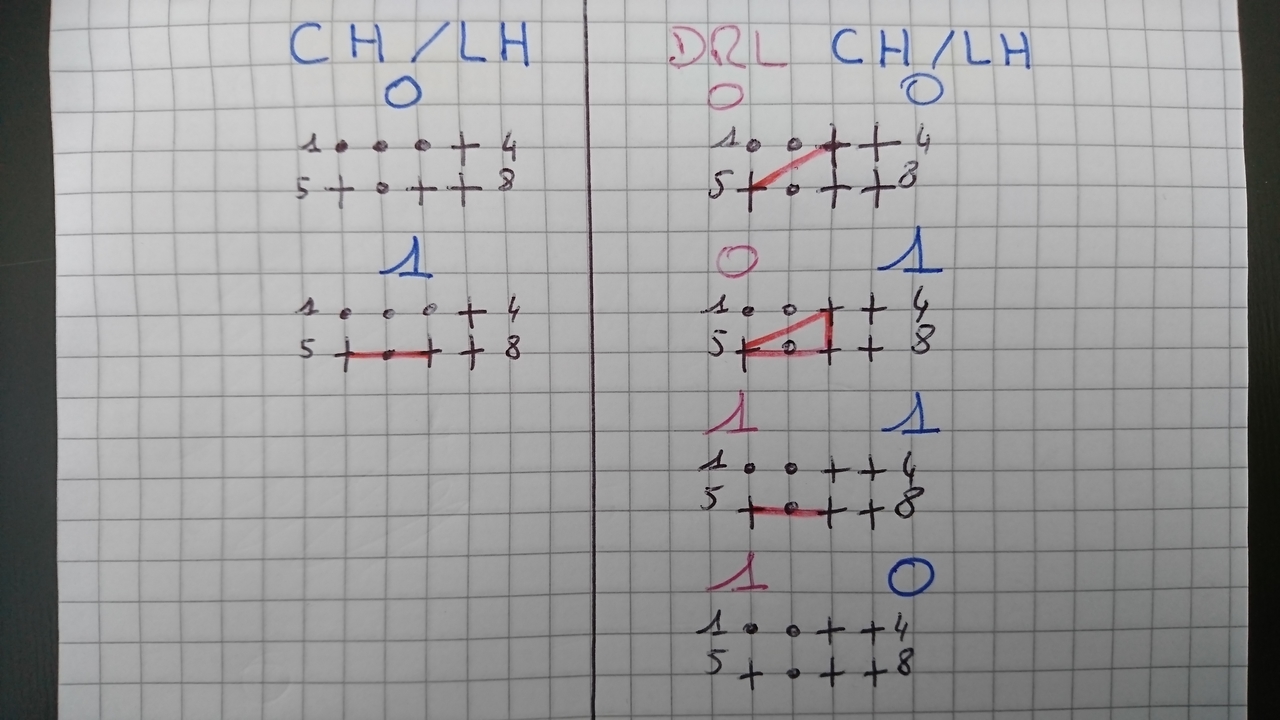 CH/LH
0
1 4
5 8
1
1 4
5 8
DRL CH/LH
0 0
1 4
5 8
0 1
1 4
5 8
1 1
1 4
5 8
1 0
1 4
5 8